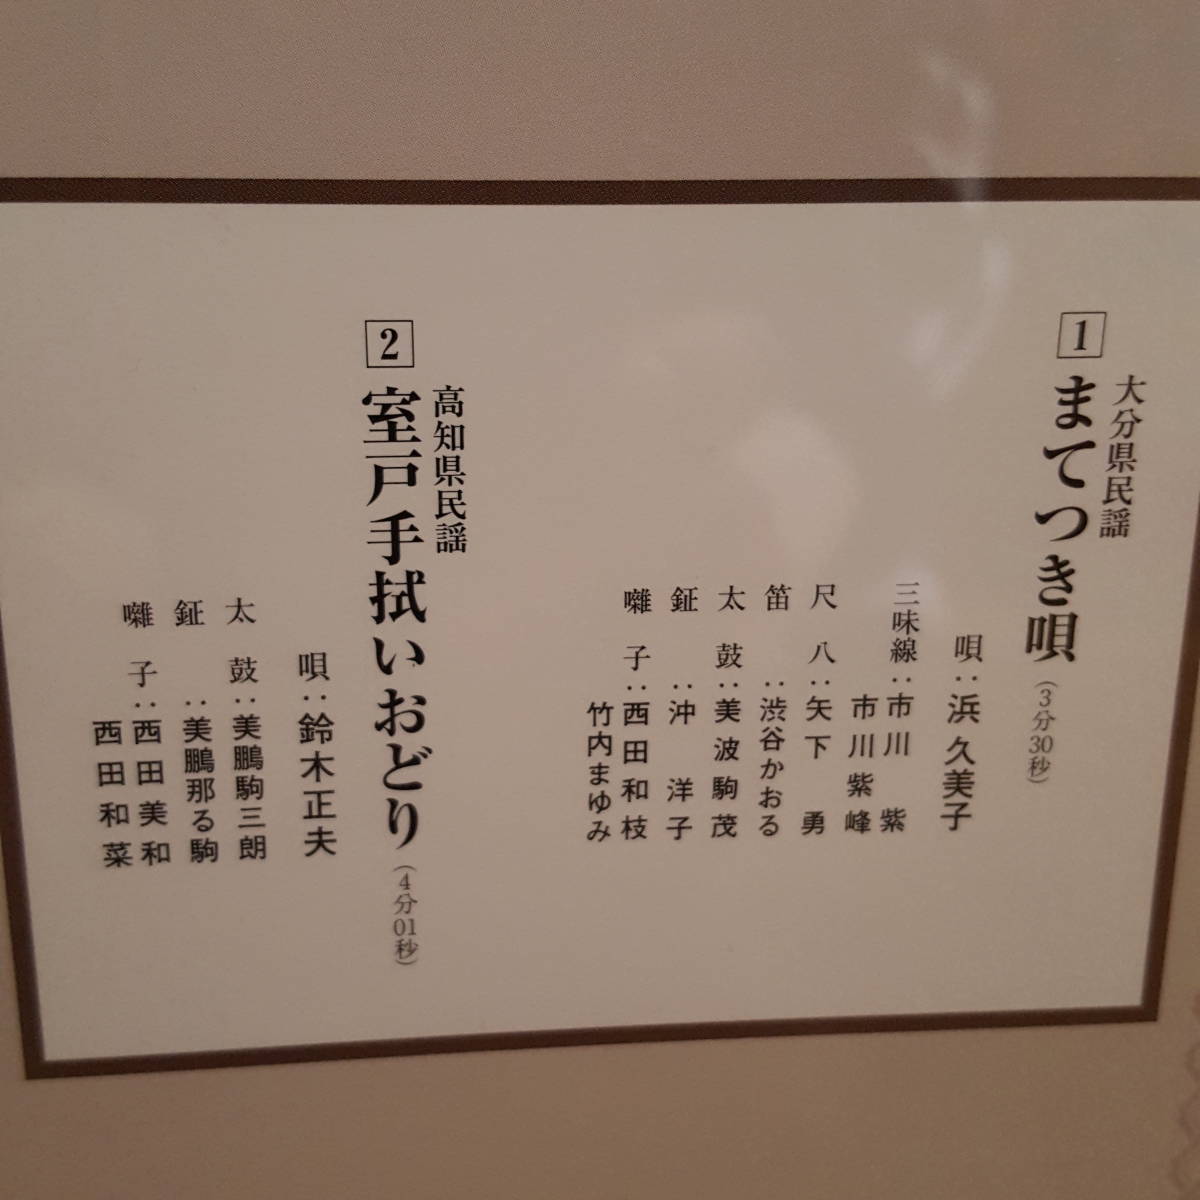 大分県民謡
1 まてつき唄（3分30秒）
唄：浜久美子
三味線：市川 紫
市川紫峰
尺八：矢下 勇
笛：渋谷かおる
太鼓：美波駒茂
鉦：沖 洋子
囃子：西田和枝
竹内まゆみ
高知県民謡
2 室戸手拭いおどり（4分01秒）
唄：鈴木正夫
太鼓：美鵬駒三朗
鉦：美鵬那る駒
囃子：西田美和
西田和菜